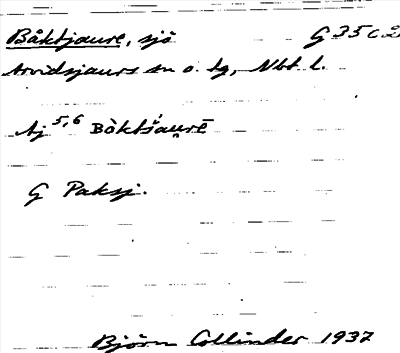 Båktjaure, sjö G 35 c 2
Arvidsjaurs sn o. tg, Nbt l.
Aj 5,6 Bòktšau̯rē
G Paksj.
Björn Collinder 1937